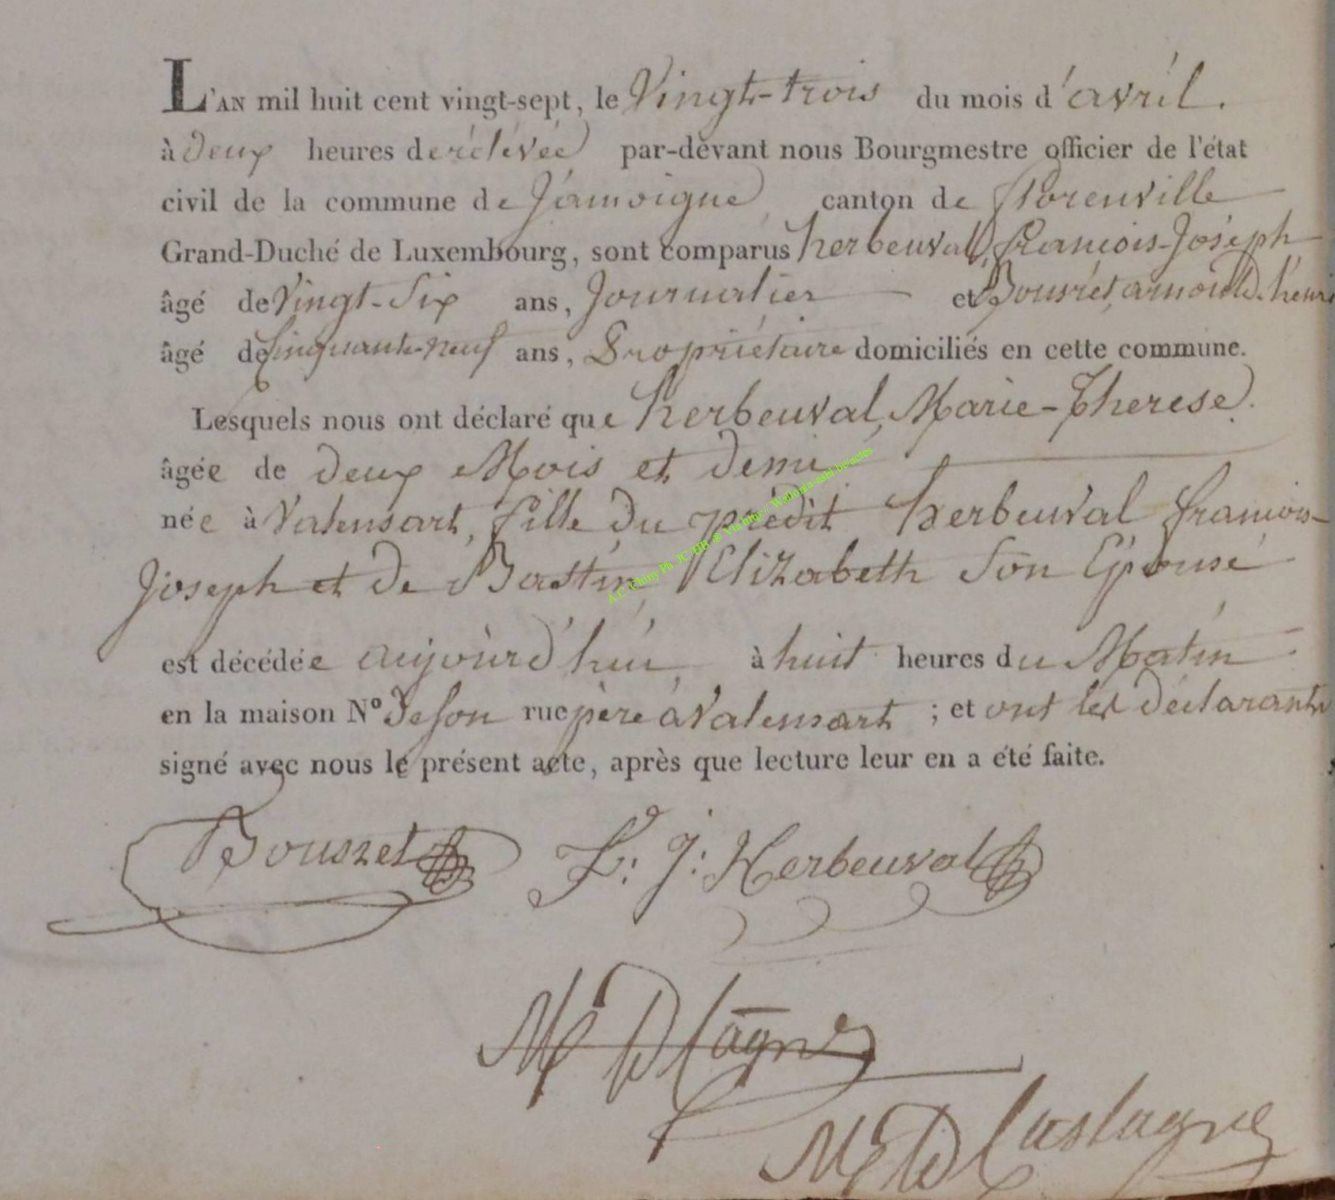 L'AN mil huit cent vingt-sept, le Vingt-trois du mois d'avril.
à deux heures de rélévée par-devant nous Bourgmestre officier de l'état
civil de la commune de Jamoigne, canton de florenville
Grand-Duché de Luxembourg, sont comparus herbeuval, françois-Joséph
âgé de Vingt-Six ans, Journalier et arnould-henri
âgé de Cinquante-neuf ans, Propriétaire domiciliés en cette commune.
Lesquels nous ont déclaré que herbeuval, Marie-Therese.
âgée de deux Mois et demi
née à Valensart, fille du prédit herbeuval françois-
Joseph et de Bastin, Elizabeth Son Épouse
est décédée aujourd'hui à huit heures du Matin
en la maison Nº de son rue père à Valensart ; et ont les déclarants
signé avec nous le présent acte, après que lecture leur en a été faite.
F: J: Herbeuval